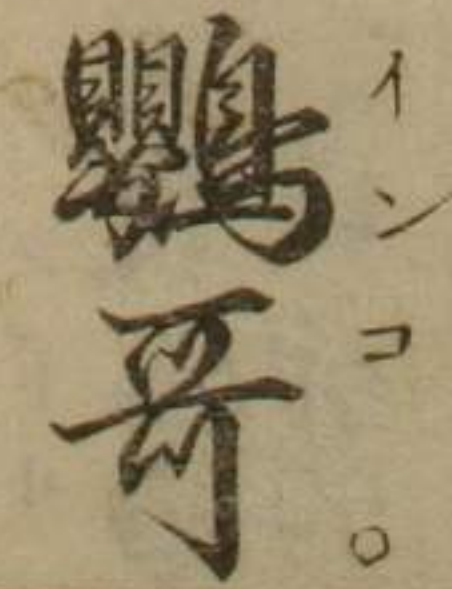 鸚哥
インコ。